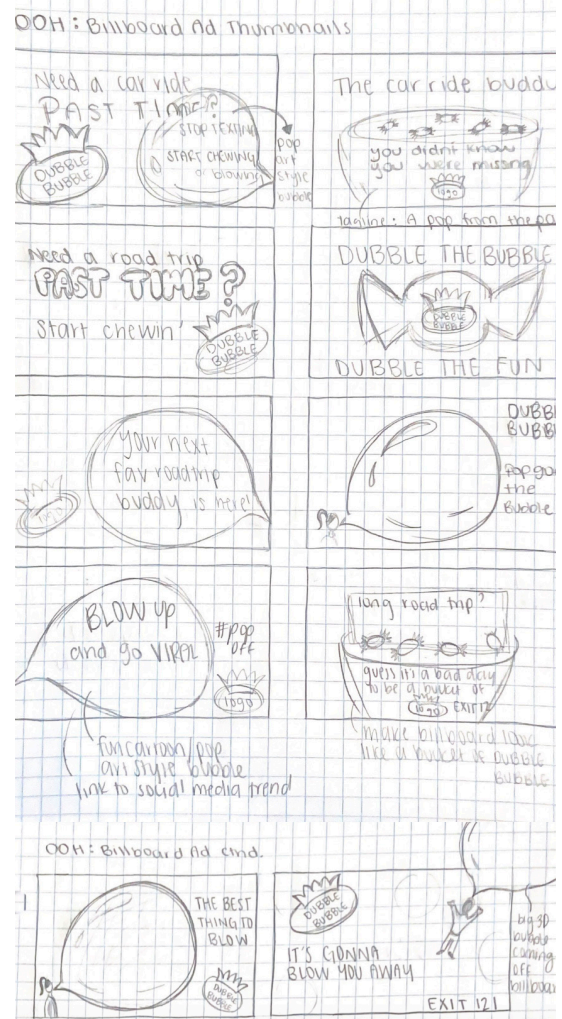 OOH: Billboard Ad Thumbnails
Need a car ride
PAST TIME?
STOP TEXTING
START CHEWING
or blowing
DUBBLE
BUBBLE
pop
art
style
bubble
The car ride buddy
you didnt know
you were missing
logo
tagline: A pop from the pa
Need a road trip
PAST TIME?
Start chewin'
DUBBLE
BUBBLE
DUBBLE THE BUBBLE
DUBBLE
BUBBLE
DUBBLE THE FUN
your next
fav roadtrip
buddy is here!
logo
DUBBL
BUBB
Pop go
the
Bubble
BLOW up
and go VIRAL
#pop
off
logo
fun cartoon/pop
art style bubble
link to social media trend
long road trip?
guess it's a bad day
to be a bucket of
logo EXIT 12
make billboard look
like a bucket of DUBBLE
BUBBLE
OOH: Billboard Ad Cntd.
1
THE BEST
THING TO
BLOW
DUBBLE
BUBBLE
DUBBLE
BUBBLE
IT'S GONNA
BLOW YOU AWAY
EXIT 121
big 3D
bubble
coming
off
billboar